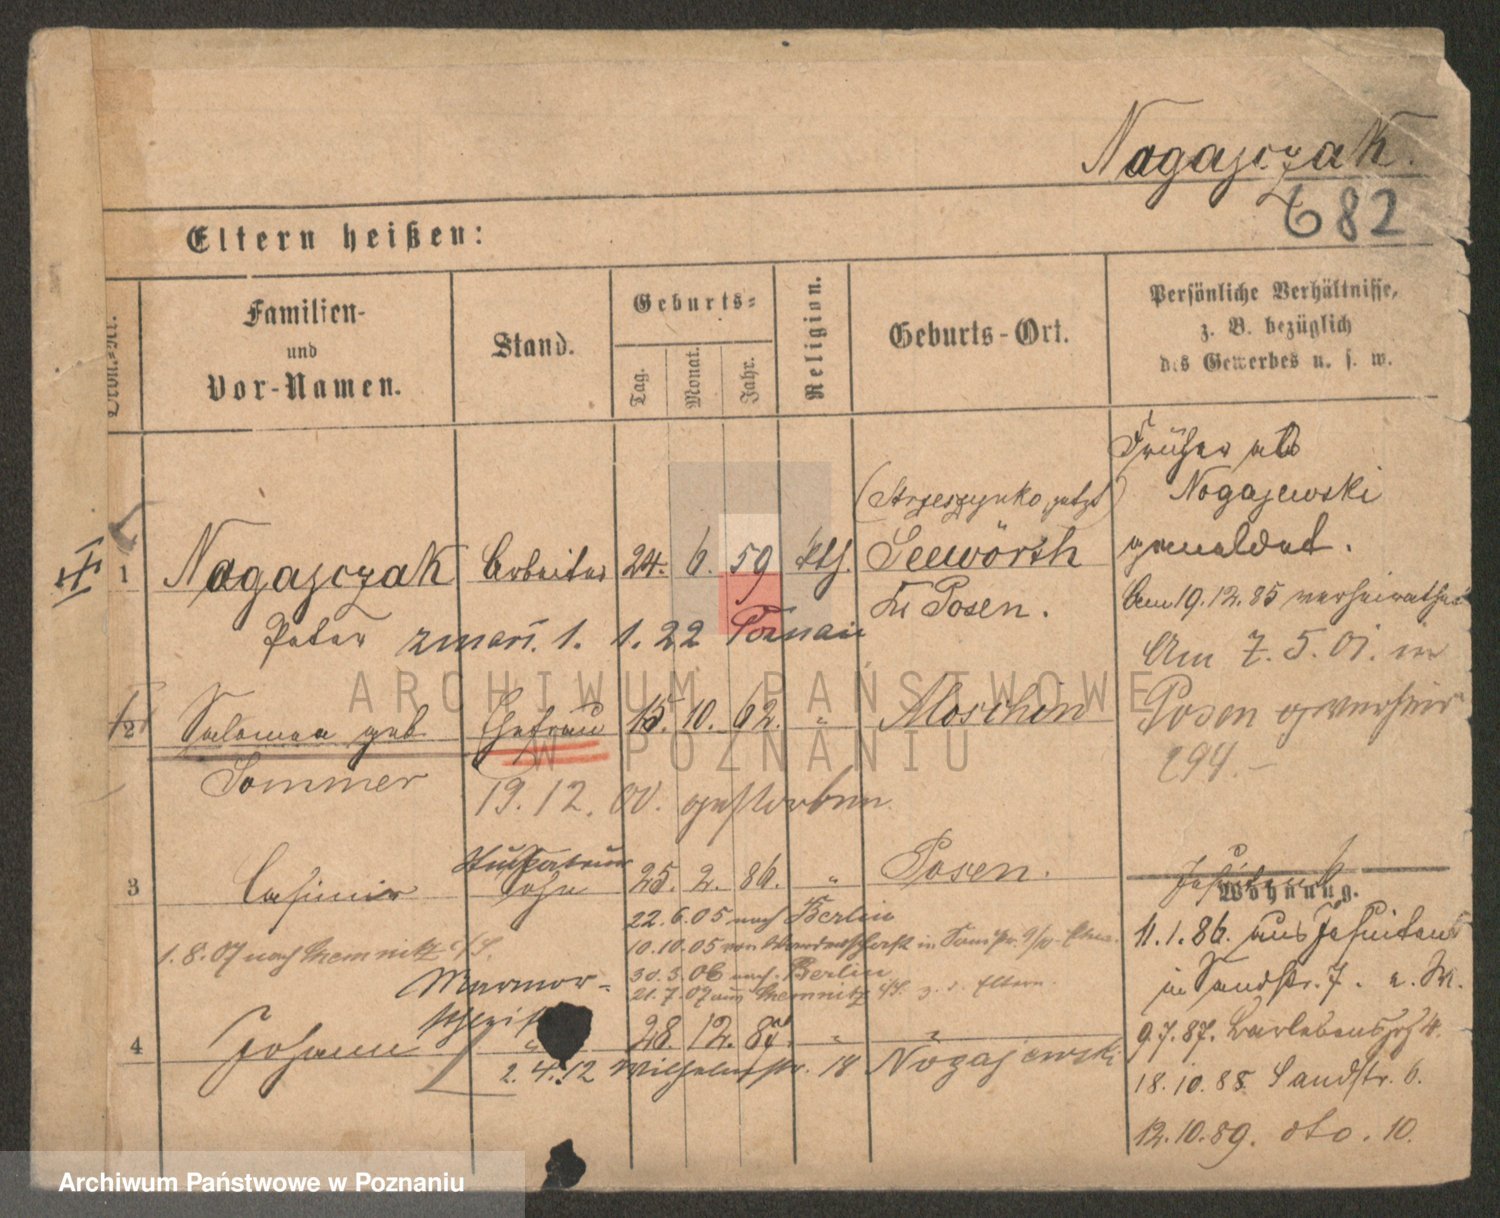 Nogajczak.
682
Eltern heißen:
Familien-
und
Vor-Namen.
Stand.
Geburts-
Tag.
Monat.
Jahr.
Religion.
Geburts-Ort.
Persönliche Verhältnisse,
z. B. bezüglich
des Gewerbes u. s. w.
Früher als
Nogajewski
gemeldet.
(Strzeszynko, jetzt)
1 Nogajczak Arbeiter 24. 6. 59 kth. Seewörth
Kr Posen.
Am 19.12.85 verheirathet
Peter zmarł 1. 1. 22 Poznań
Am 7. 5. 01. in
Posen
294.-
2 Salomea geb. Ehefrau 15. 10. 62. " Moschin
Sommer
19. 12. 00. gestorben
3 Casimir Sohn 25. 2. 86. " Posen.
Wohnung.
22. 6. 05 nach Berlin
10. 10. 05 von Wanderschaft in
1. 8. 07 nach Chemnitz
30. 3. 06 nach Berlin
21. 7. 07 aus Chemnitz z. d. Eltern.
11. 1. 86. aus
in Sandstr. 7.
Marmor-
4 Johann 28 12. 87. " "
9.7.87.
2. 4. 12 Wilhelmstr. 18 Nogajewski
18. 10. 88 Sandstr. 6.
12. 10. 89. dto. 10.
ARCHIWUM PAŃSTWOWE
W POZNANIU
Archiwum Państwowe w Poznaniu